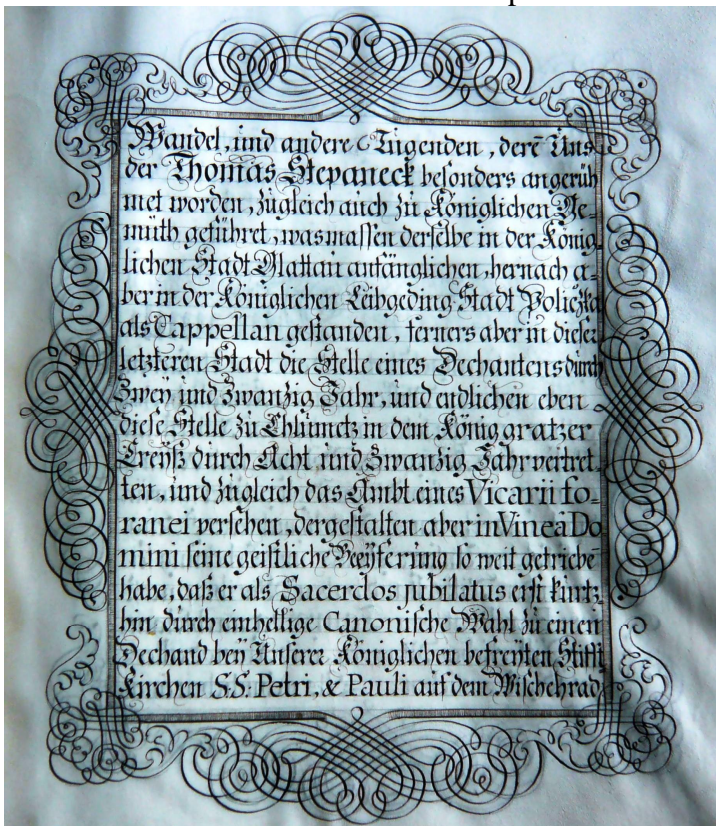 Wandel, und andere Tugenden, derē Uns
der Thomas Stepaneck besonders angerüh
met worden, zugleich auch zu Königlichen Ge-
müth geführet, wasmassen derselbe in der König,
lichen Stadt Klattau anfänglichen, hernach a-
ber in der Königlichen Leibgeding Stadt Policžka
als Cappellan gestanden, ferners aber in dieser
letzteren Stadt die Stelle eines Dechantens durch
Zwey und Zwanzig Jahr, und endlichen eben
diese Stelle zu Chlumetz in dem König gratzer
Creyß durch Acht und Zwanzig Jahr vertret,
ten, und zugleich das Ambt eines Vicarii fo-
ranei versehen, dergestalten aber in Vineâ Do
mini seine geistliche Beeyferung so weit getriebē
habe, daß er als Sacerdos jubilatus erst kurtz,
hin durch einhellige Canonische Wahl zu einen
Dechand bey Unserer Königlichen befreyten Stifft
Kirchen S.S: Petri, & Pauli auf dem Wischehrad